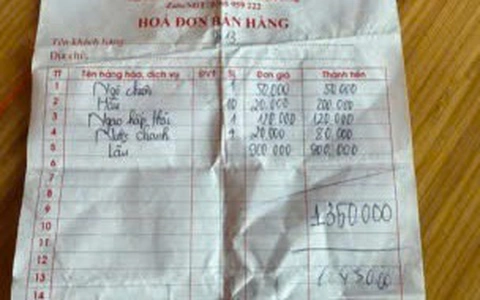 HOÁ ĐƠN BÁN HÀNG
Tên khách hàng
Địa chỉ:
TT Tên hàng hóa, dịch vụ ĐVT SL Đơn giá Thành tiền
1 50.000 50.000
2 Hàu 10 20.000 200.000
3 Ngao hấp thái 1 120.000 120.000
4 Nước chanh 4 20.000 80.000
5 Lẩu 900.000 900.000
6
7
8
9
10 1350000
11
12
13
14